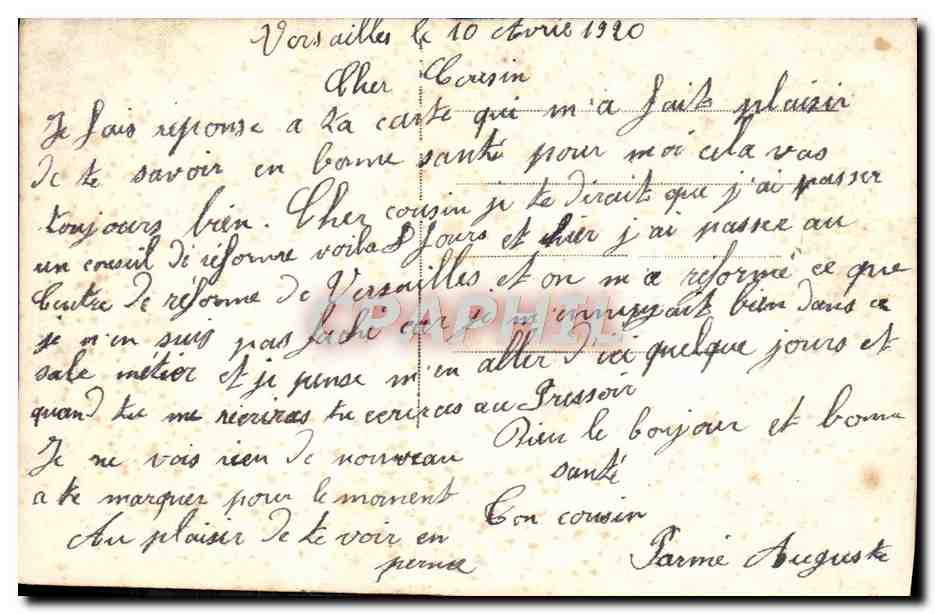 Versailles le 10 Avril 1920
Cher Cousin
Je fais réponse a ta carte qui m'a fait plaisir
de te savoir en bonne santé pour moi cela vas
toujours bien. Cher cousin je te dirait que j'ai passer
un conseil de réforme voila 8 jours et hier j'ai passer au
Centre de réforme de Versailles et on m'a réformé ce que
je n'en suis pas faché car je m'ennuyait bien dans ce
sale métier et je pense m'en aller d'ici quelque jours et
quand tu me riecriras tu ecriras au Pressoir
Je ne vois rien de nouveau
a te marquer pour le moment
Au plaisir de te voir en
perme
Bien le bonjour et bonne
santé
Ton cousin
Parmé Auguste
CPAPHIL